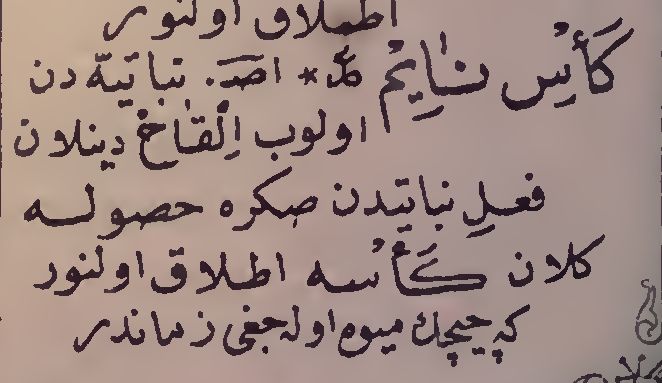 اطلاق اولنور
كَأْسِ نَايِمْ اصـ. نباتيّه دن
اولوب اِلْقَاحْ دينلان
فعلِ نباتيدن صكره حصوله
كلان كَأْسه اطلاق اولنور
كه چيچك ميوه اوله جغى زماندر